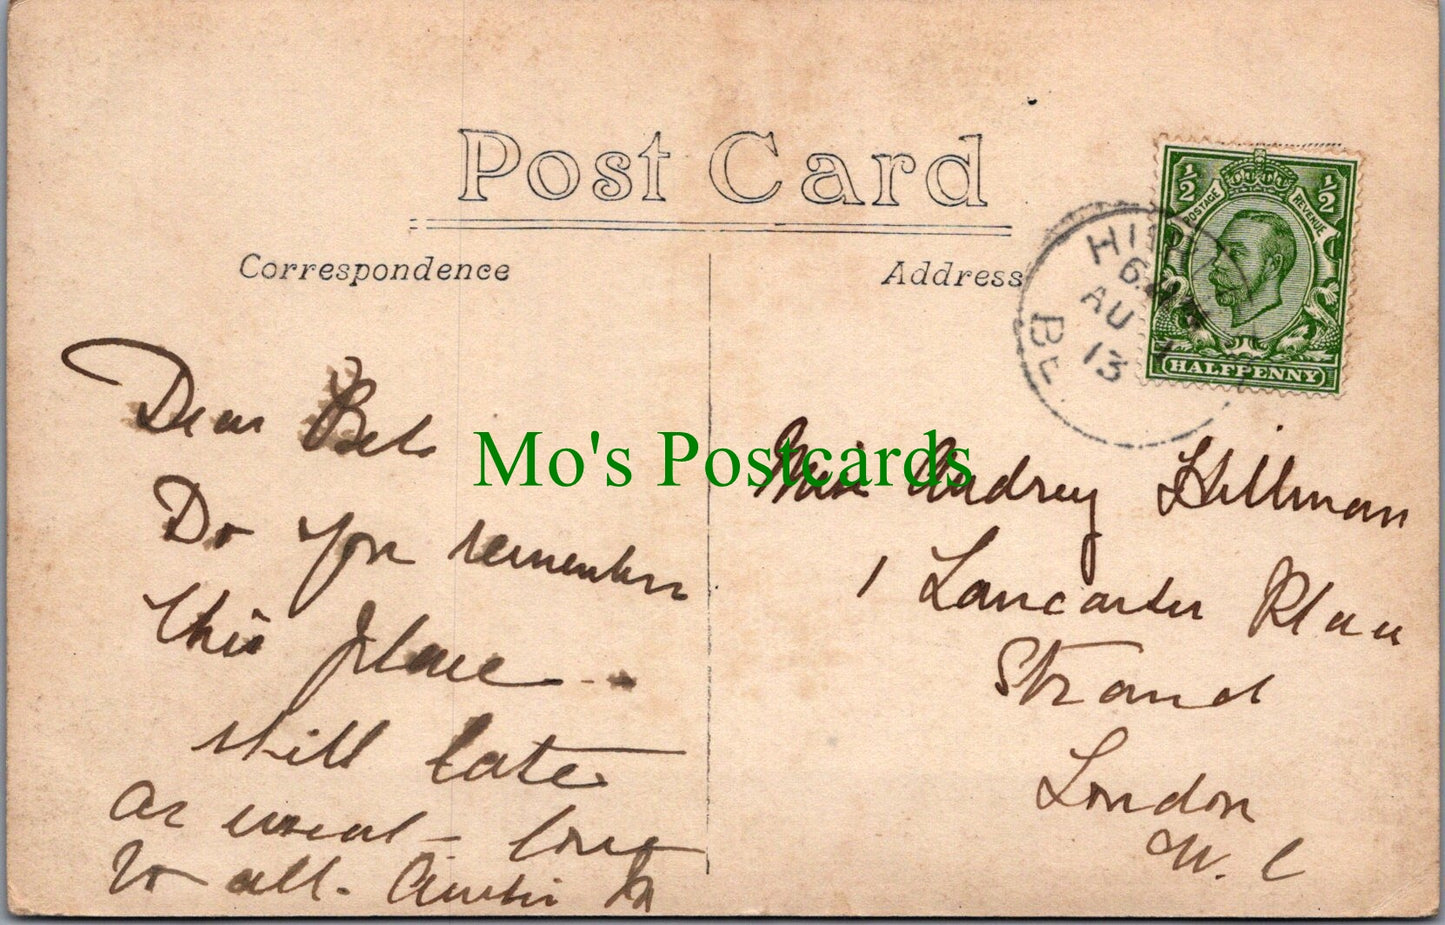 Post Card
Correspondence
Address
1/2 1/2
POSTAGE REVENUE
HALFPENNY
AU
13
Mo's Postcards
Dear
Do you remember
this place
still late
as usual - love
to all.
Miss Audrey Hillman
1 Lancaster Place
Strand
London
W.C